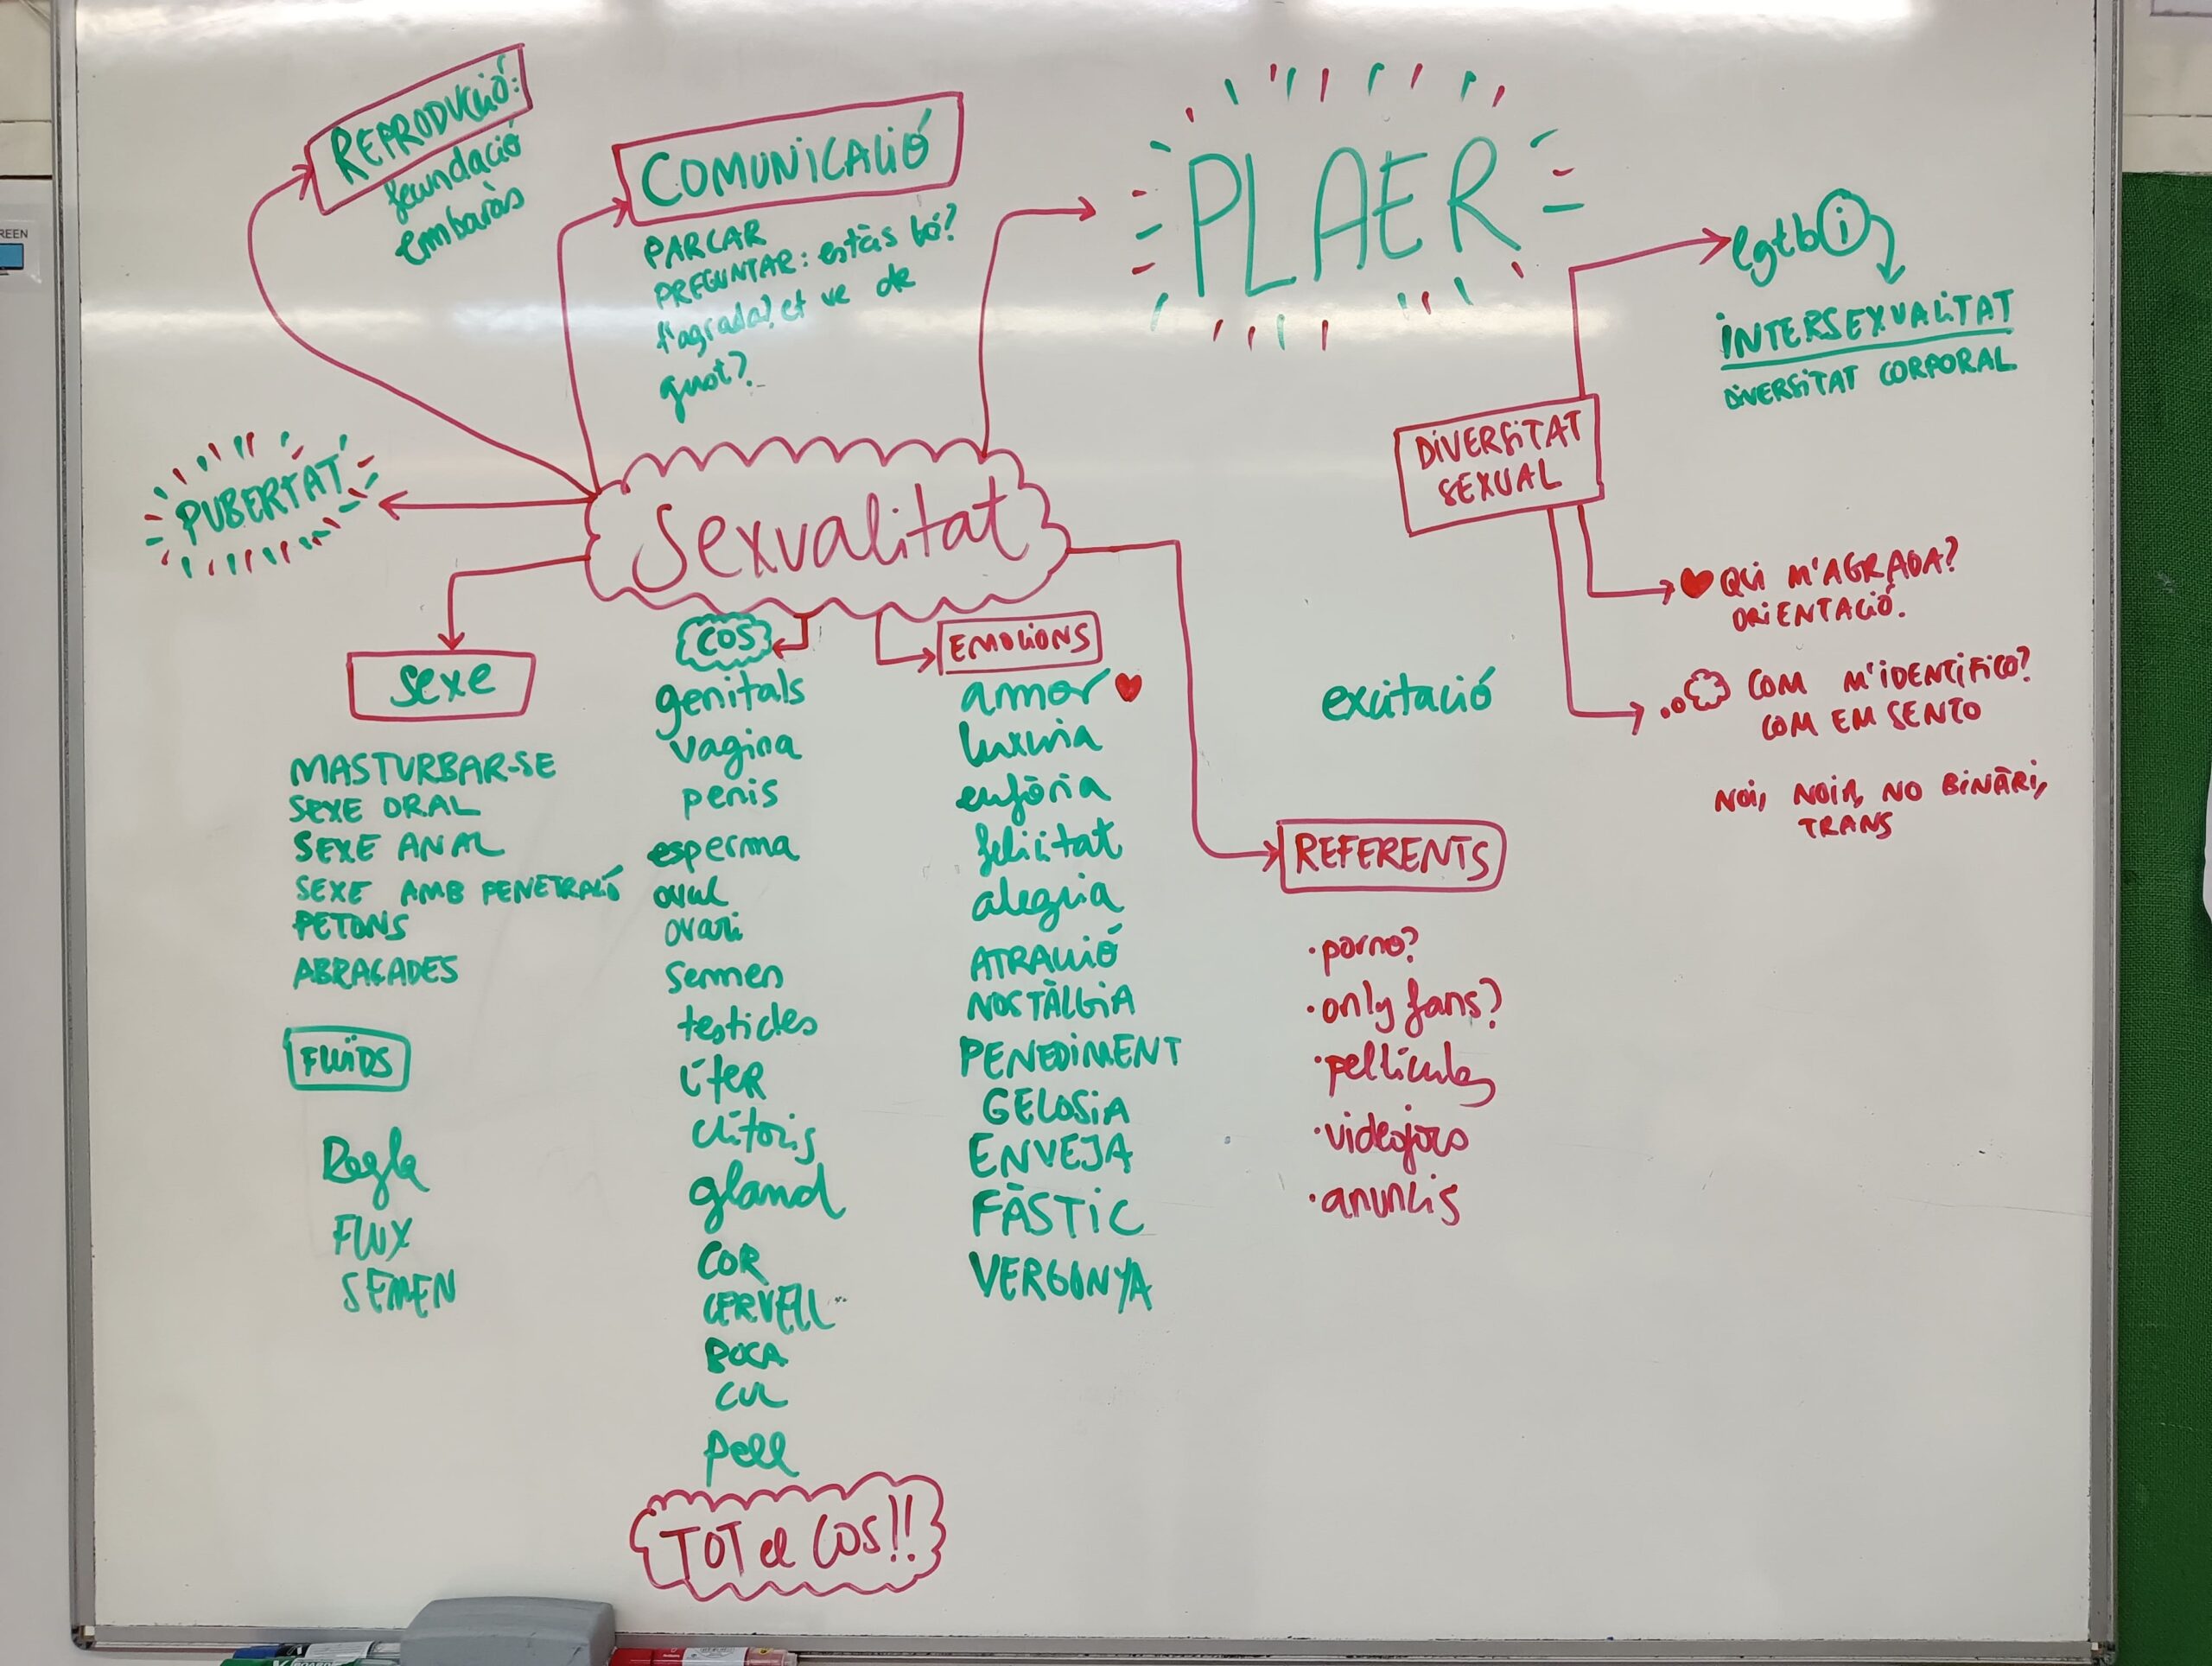 REPRODUCCIÓ:
fecundació
embaràs
COMUNICACIÓ
PARLAR
PREGUNTAR: estàs bé?
t'agrada? et ve de
gust?
PLAER
lgtbi
INTERSEXUALITAT
DIVERSITAT CORPORAL
DIVERSITAT
SEXUAL
QUI M'AGRADA?
ORIENTACIÓ.
COM M'IDENTIFICO?
COM EM SENTO
NOI, NOIA, NO BINÀRI,
TRANS
PUBERTAT
Sexualitat
sexe
MASTURBAR-SE
SEXE ORAL
SEXE ANAL
SEXE AMB PENETRACIÓ
PETONS
ABRAÇADES
FLUÏDS
Regla
FLUX
SEMEN
COS
genitals
vagina
penis
esperma
òvul
ovari
semen
testicles
úter
clítoris
gland
COR
CERVELL
BOCA
CUL
pell
TOT el COS!!
EMOCIONS
amor
luxuria
eufòria
felicitat
alegria
ATRACCIÓ
NOSTÀLGIA
PENEDIMENT
GELOSIA
ENVEJA
FÀSTIC
VERGONYA
excitació
REFERENTS
·porno?
·only fans?
·pel·lícules
·videojocs
·anuncis
REEN